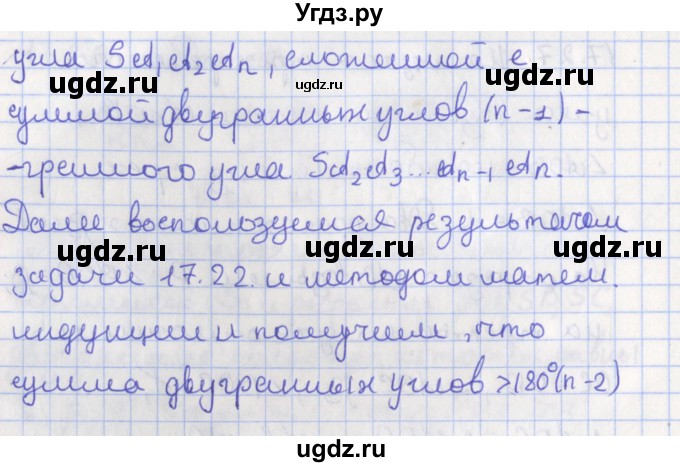 Угдз.ру
угла SA₁A₂Aₙ, сложенной с
суммой двугранных углов (n-1)-
-гранного угла SA₂A₃...Aₙ₋₁Aₙ.
Далее воспользуемся результатом
задачи 17.22. и методом матем.
индукции и получим, что
сумма двугранных углов >180°(n-2)
ugdz.ru ugdz.ru ugdz.ru
ugdz.ru ugdz.ru ugdz.ru
ugdz.ru ugdz.ru ugdz.ru
ugdz.ru